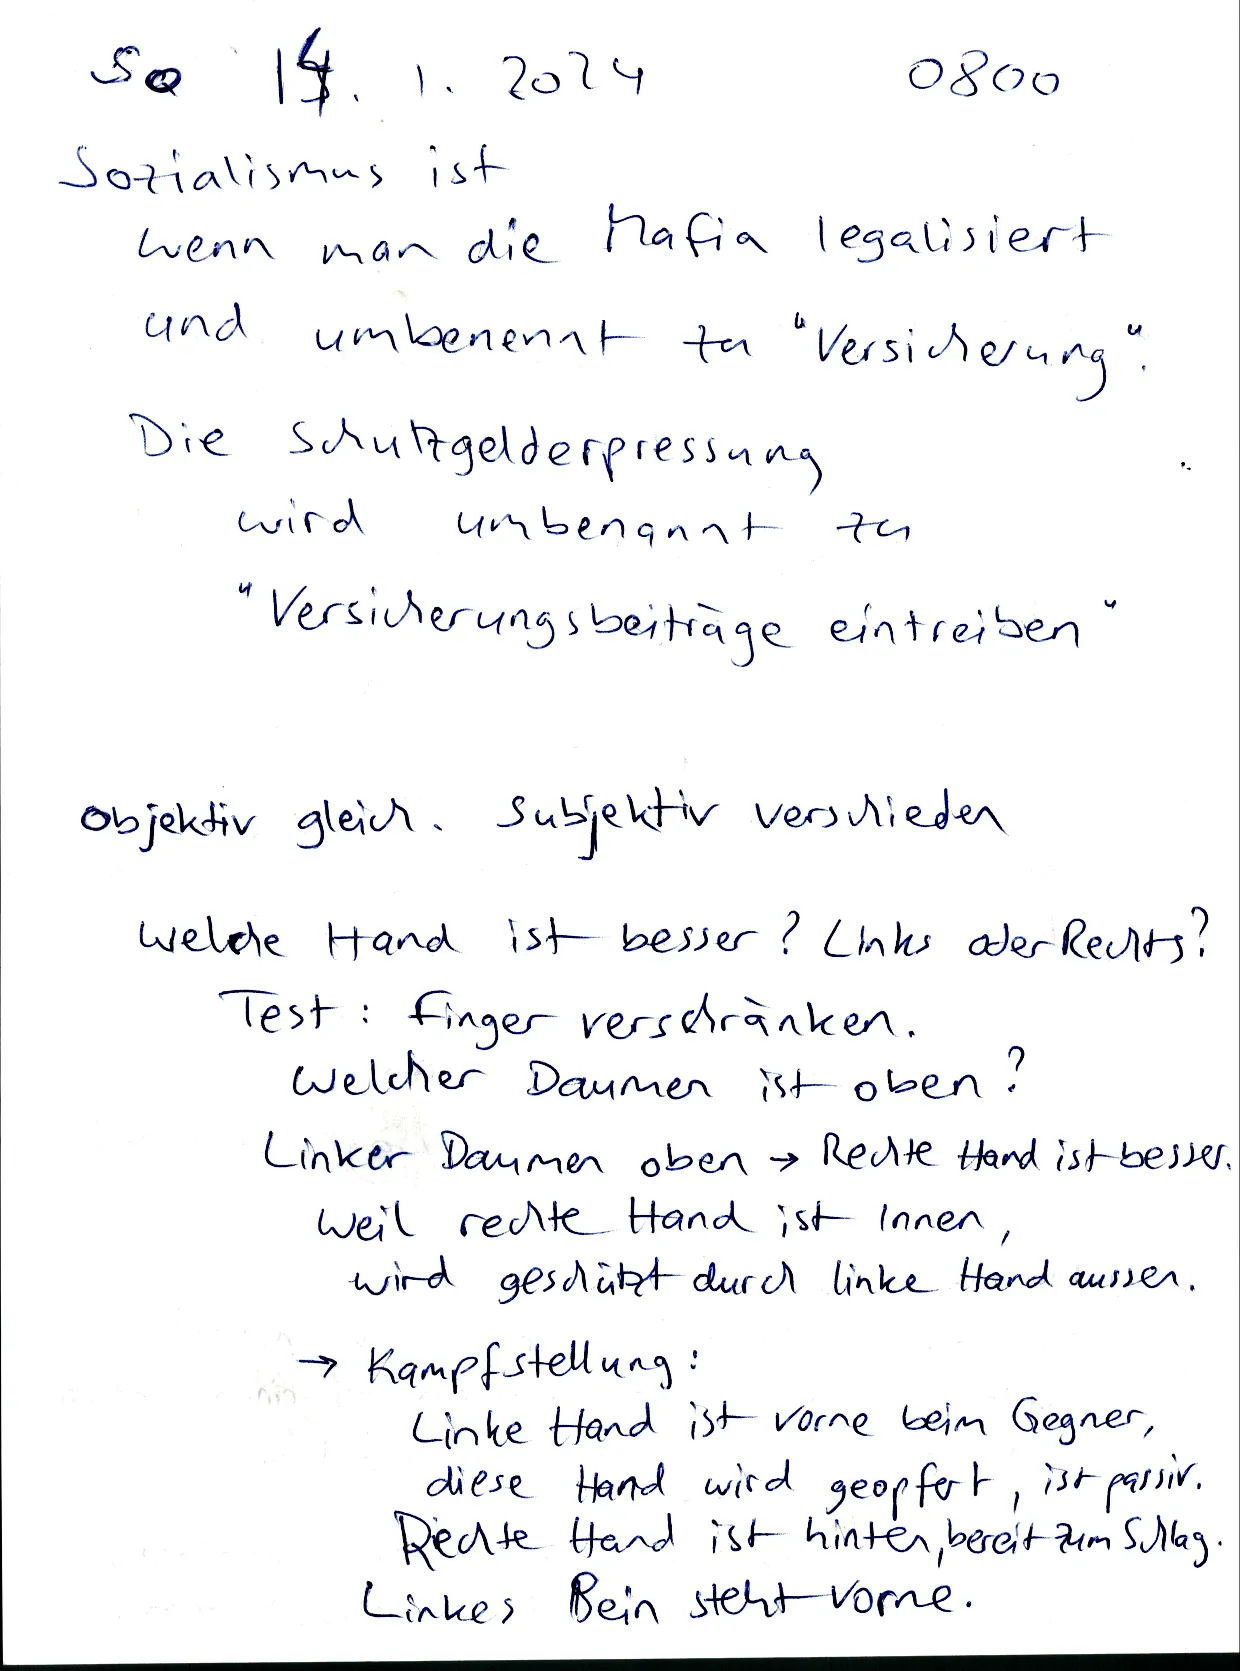 So 14. 1. 2024 0800
Sozialismus ist
wenn man die Mafia legalisiert
und umbenennt zu "Versicherung".
Die Schutzgelderpressung
wird umbenannt zu
"Versicherungsbeiträge eintreiben"
Objektiv gleich. Subjektiv verschieden
Welche Hand ist besser? Links oder Rechts?
Test: Finger verschränken.
Welcher Daumen ist oben?
Linker Daumen oben → Rechte Hand ist besser.
Weil rechte Hand ist innen,
wird geschützt durch linke Hand aussen.
→ Kampfstellung:
Linke Hand ist vorne beim Gegner,
diese Hand wird geopfert, ist passiv.
Rechte Hand ist hinten, bereit zum Schlag.
Linkes Bein steht vorne.